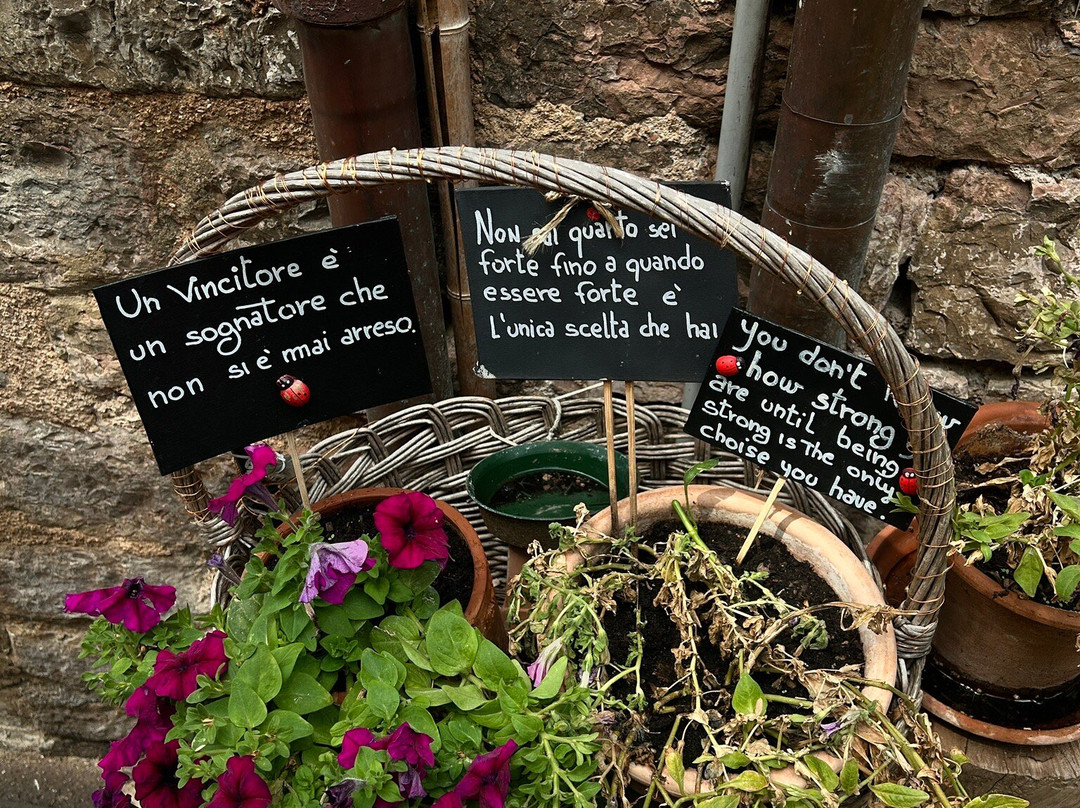 Un Vincitore è
un sognatore che
non si è mai arreso.
Non sai quanto sei
forte fino a quando
essere forte è
L'unica scelta che hai
You don't
how strong
are until being
strong is The only
choise you have.